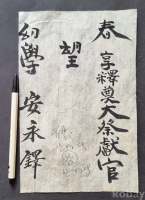 春享釋奠大祭獻官
望
幼學 安永鐸
kobay